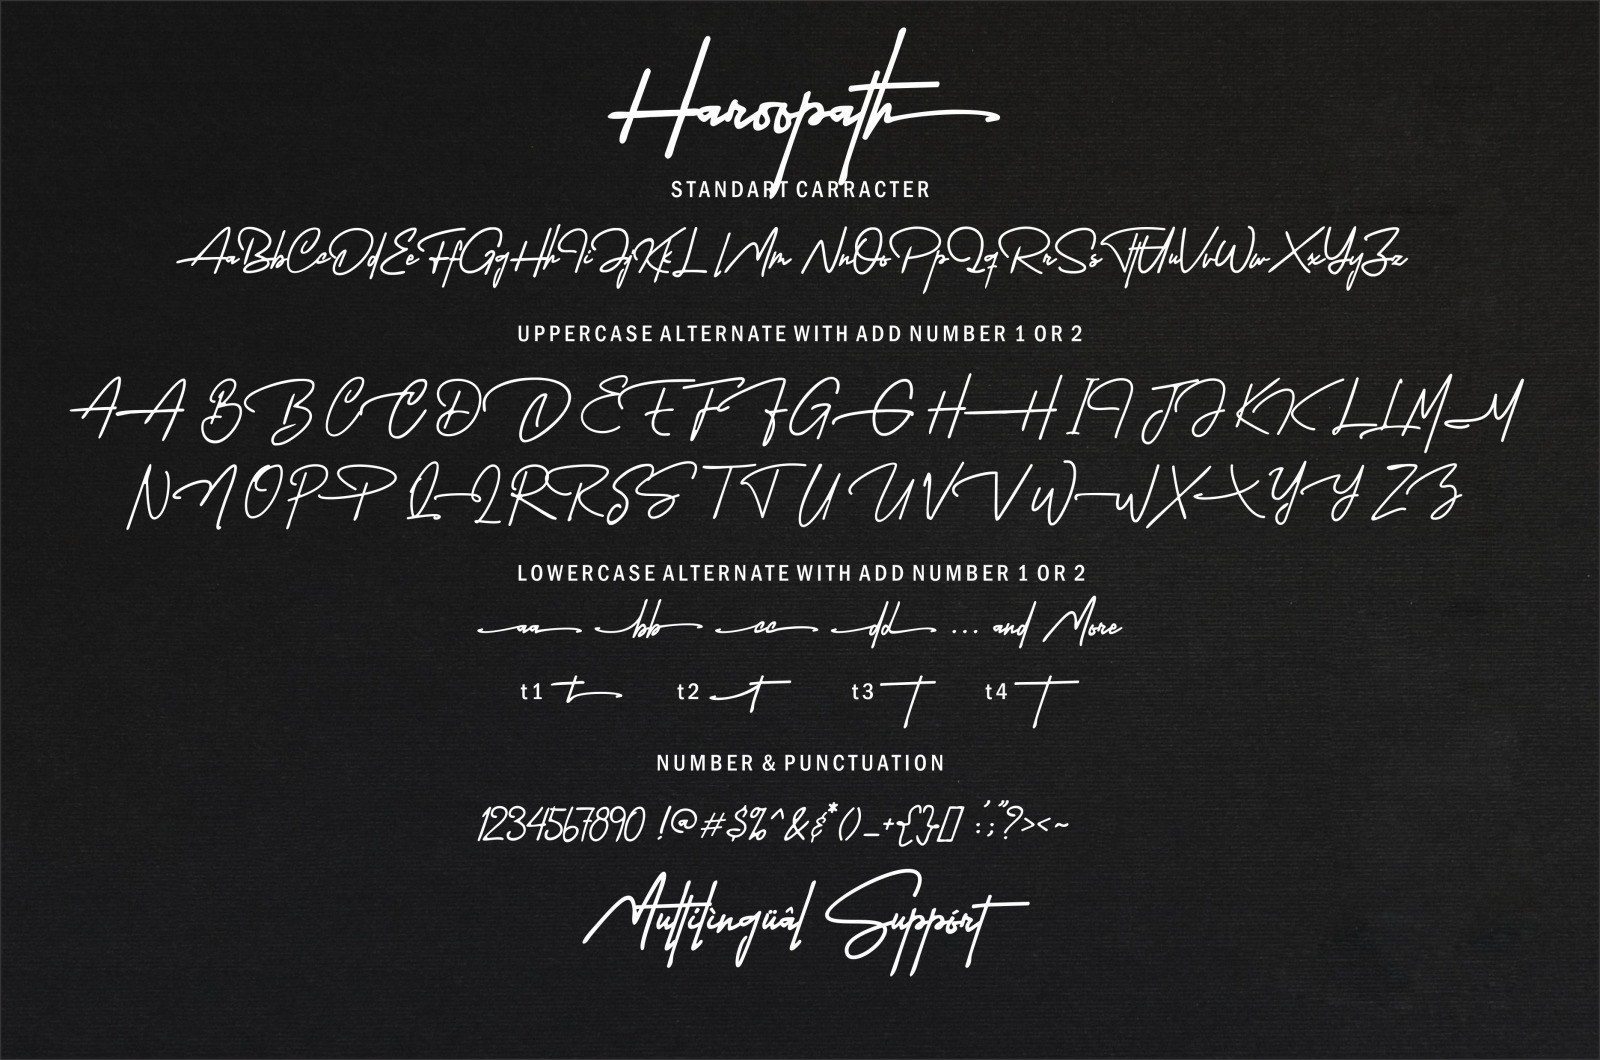 Haroopath
STANDART CARRACTER
AaBbCcDdEeFfGgHhIiJjKkLlMmNnOoPpQqRrSsTtUuVvWwXxYyZz
UPPERCASE ALTERNATE WITH ADD NUMBER 1 OR 2
AA BB CC DD EE FF GG HH II JJ KK LL MM
NN O PP QQ RR SS TT UU VV WW XX YY ZZ
LOWERCASE ALTERNATE WITH ADD NUMBER 1 OR 2
aa bb cc dd ... and More
t1 t t2 t t3 t t4 t
NUMBER & PUNCTUATION
1234567890 !@#$%^&&*()_+{}[] :;'"?><~
Multilìngüâl Suppórt